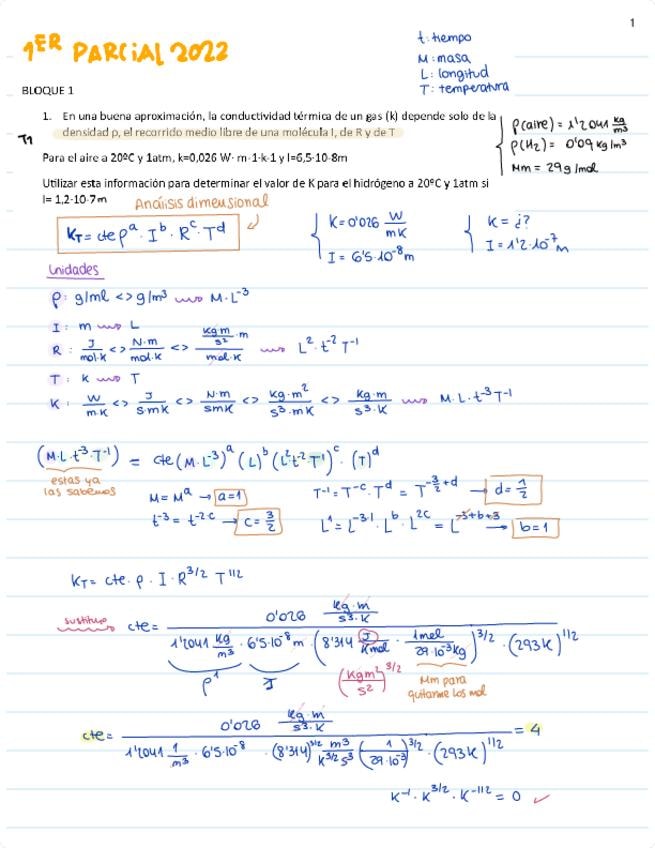 1
1ER PARCIAL 2022
t: tiempo
M: masa
L: longitud
T: temperatura
BLOQUE 1
1. En una buena aproximación, la conductividad térmica de un gas (k) depende solo de la
densidad ρ, el recorrido medio libre de una molécula l, de R y de T
T1
ρ(aire) = 1'2041 kg/m3
ρ(H2) = 0'09 kg/m3
Mm = 29 g/mol
Para el aire a 20ºC y 1atm, k=0,026 W· m-1·k-1 y l=6,5·10-8m
Utilizar esta información para determinar el valor de K para el hidrógeno a 20ºC y 1atm si
l= 1,2·10-7m
Análisis dimensional
KT = cte ρ^a · I^b · R^c · T^d
K = 0'026 W/mK
I = 6'5·10^-8 m
K = ¿?
I = 1'2·10^-7 m
Unidades
ρ: g/ml <> g/m3 M·L^-3
I: m L
R: J/mol·K <> N·m/mol·K <> kg m/s2 · m/mol·K L^2·t^-2 T^-1
T: K T
K: W/m·K <> J/s·mK <> N·m/smK <> kg·m^2/s^3·mK <> kg·m/s^3·K M·L·t^-3 T^-1
(M·L·t^-3·T^-1) = cte (M·L^-3)^a (L)^b (L^2 t^-2·T^-1)^c · (T)^d
estas ya
las sabemos
M = M^a → a=1
T^-1 = T^-c · T^d = T^-3/2+d → d = 1/2
t^-3 = t^-2·c → c = 3/2
L^1 = L^-3·1 · L^b · L^2c = L^-3+b+3 → b=1
KT = cte · ρ · I · R^3/2 T^1/2
sustituyo
cte = 0'026 kg·m/s3·K / 1'2041 kg/m3 · 6'5·10^-8 m · (8'314 J/Kmol · 1mol/29·10^-3 kg)^3/2 · (293K)^1/2
ρ^1
I
(kgm^2/s^2)^3/2
Mm para
quitarme los mol
cte = 0'026 kg·m/s3·K / 1'2041 1/m3 · 6'5·10^-8 · (8'314)^3/2 m^3/K^3/2 s^3 (1/29·10^-3)^3/2 · (293K)^1/2 = 4
K^-1 · K^3/2 · K^-1/2 = 0 ✓